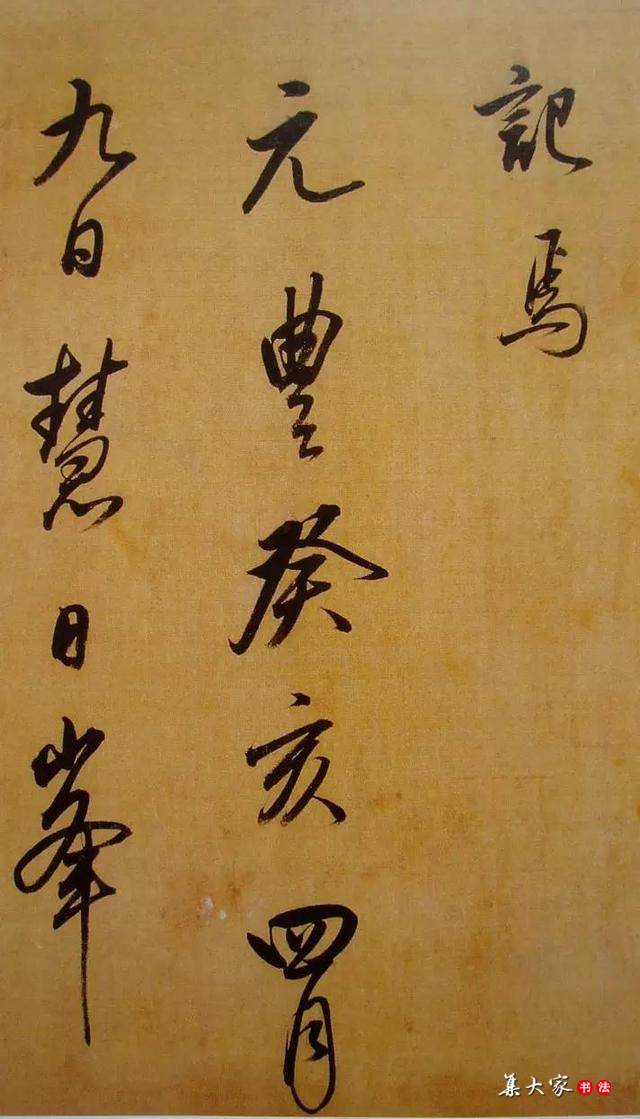 記焉
元豊癸亥四月
九日慧日峯
集大家书法